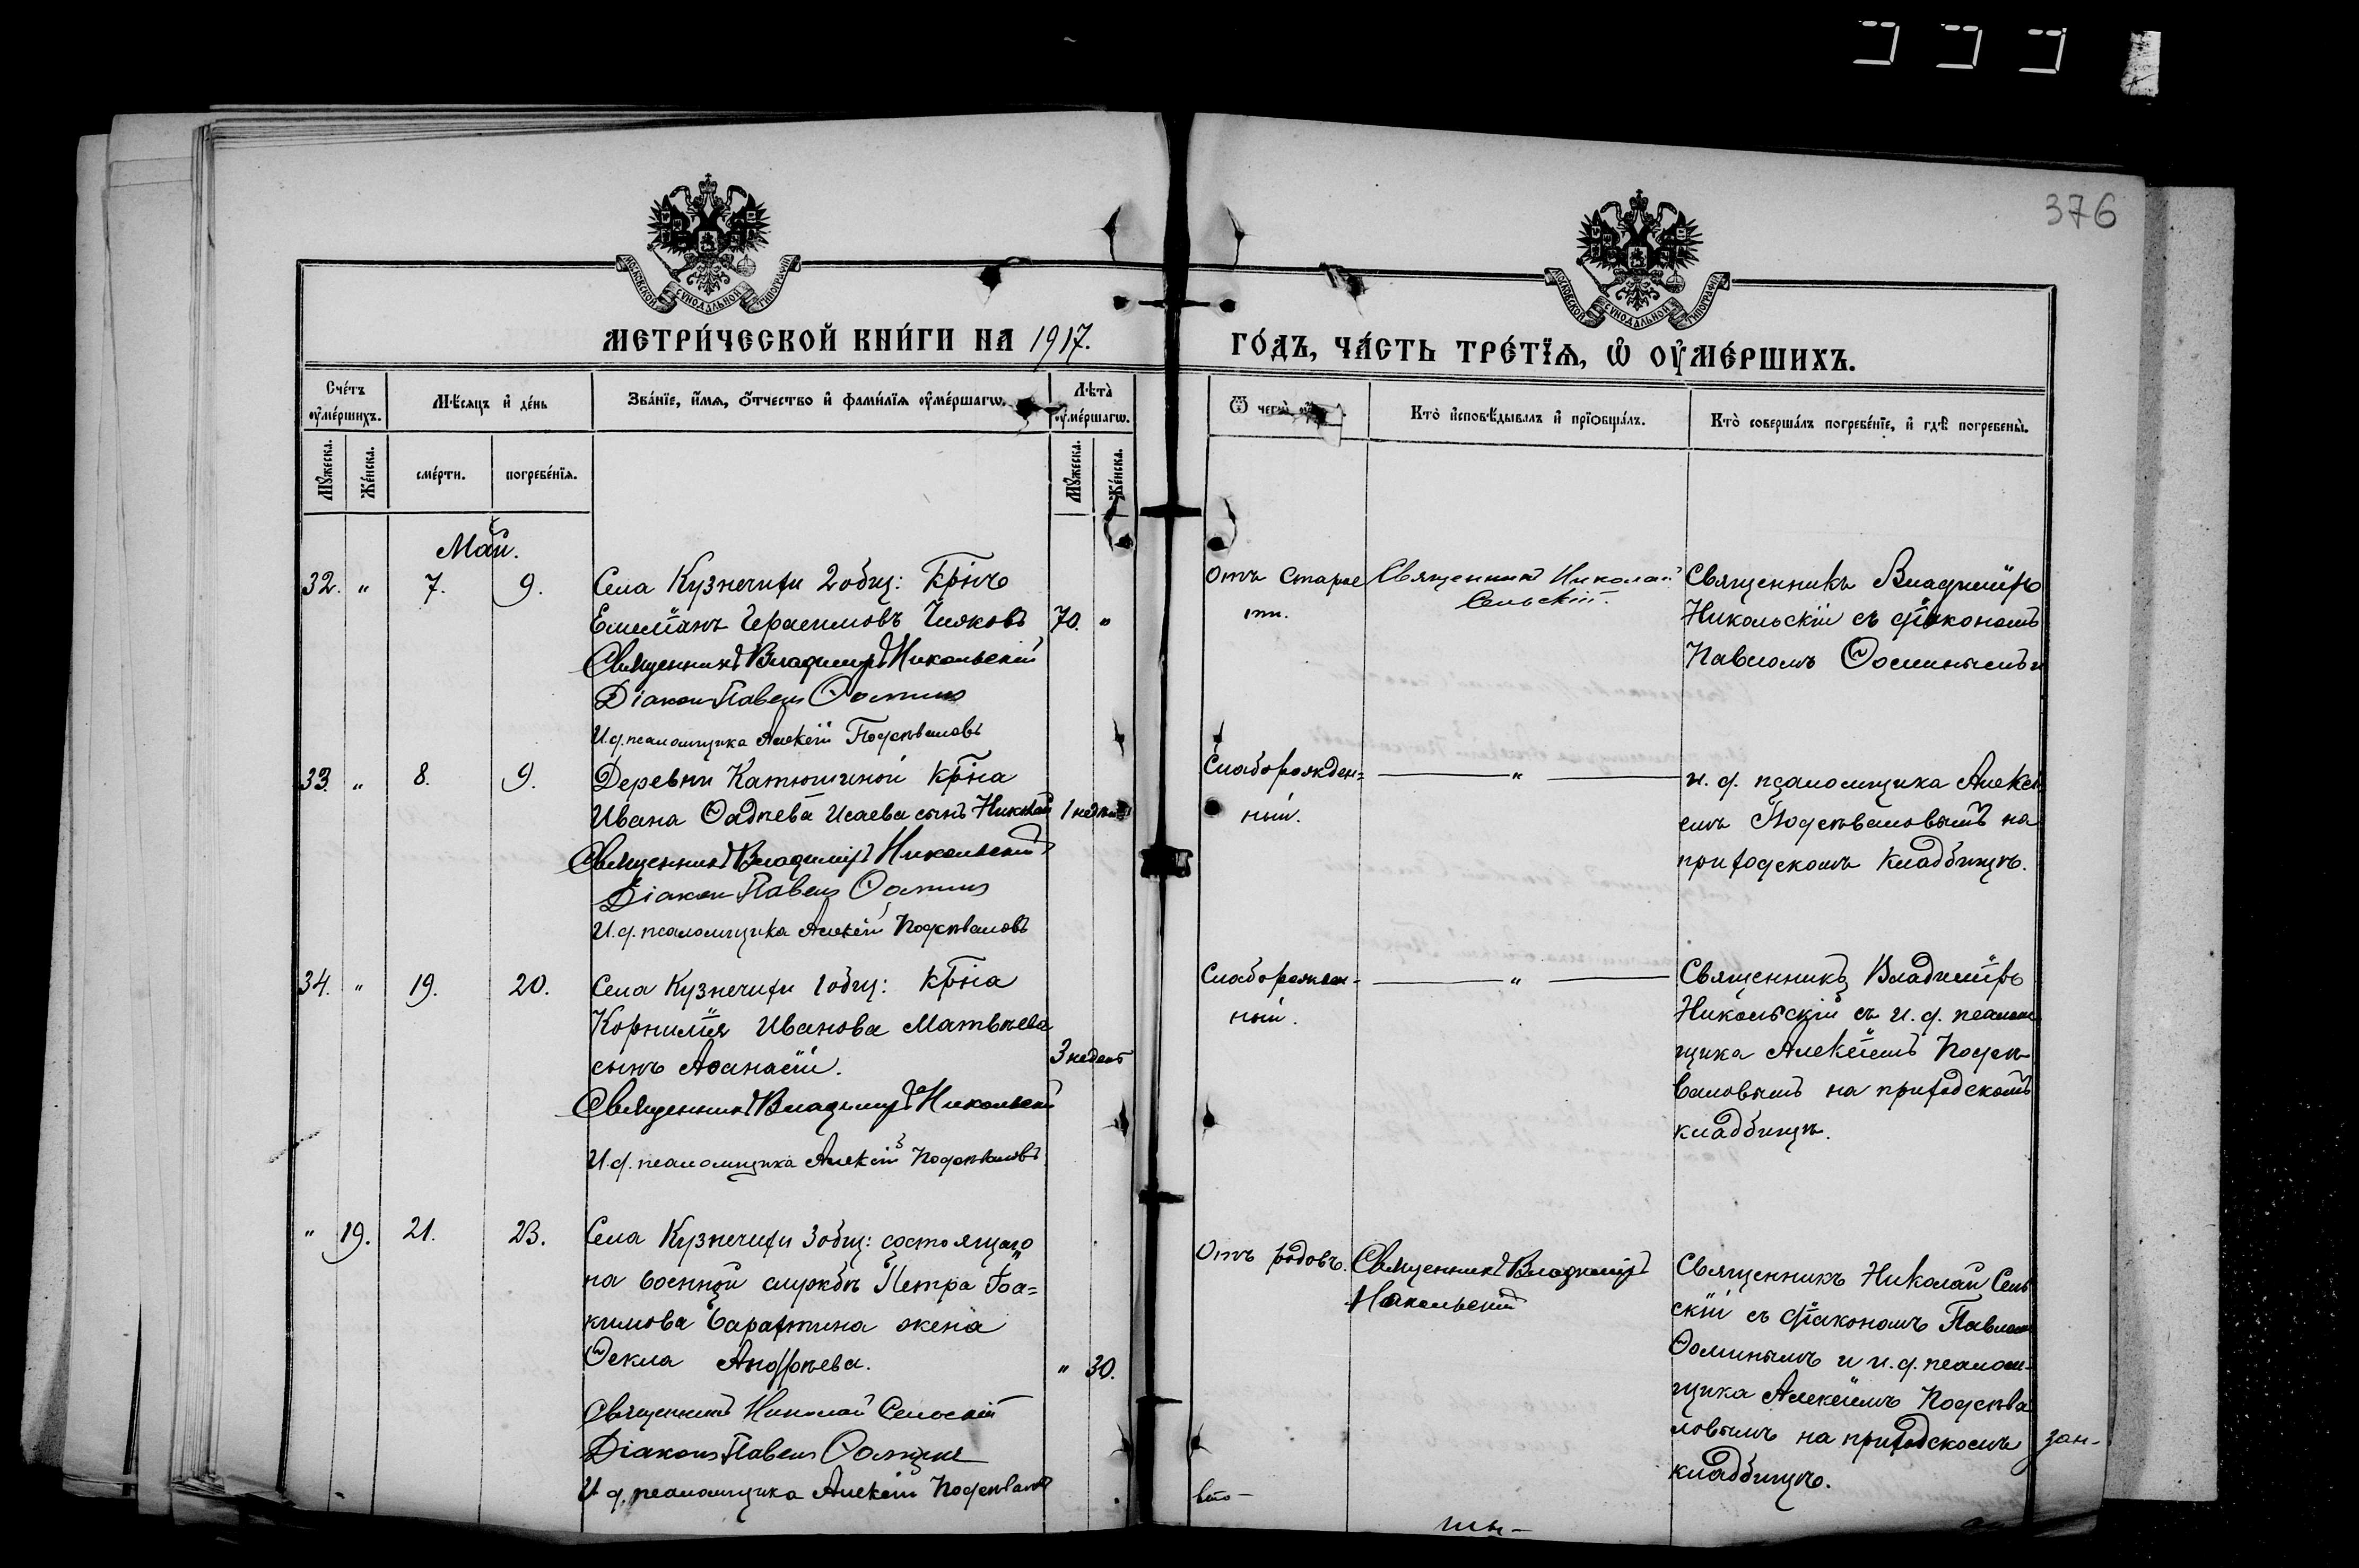 376
МОСКОВСКОЙ СѴНОДАЛЬНОЙ ТИПОГРАФІИ
МОСКОВСКОЙ СѴНОДАЛЬНОЙ ТИПОГРАФІИ
МЕТРИ́ЧЕСКОЙ КНИ́ГИ НА 1917.
ГО́ДЪ, ЧА́СТЬ ТРЕ́ТЇѦ, Ѡ҆ ОУ҆МЕ́РШИХЪ.
Сче́тъ оу҆ме́ршихъ.
Мѣ́сяцъ и҆ де́нь
Зва́нїе, и҆́мѧ, ѻ҆́тчество и҆ фами́лїѧ оу҆ме́ршагѡ.
Лѣта̀ оу҆ме́ршагѡ.
Ѿ чегѡ̀
Кто̀ и҆сповѣ́дывалъ и҆ прїѡбща́лъ.
Кто̀ соверша́лъ погребе́нїе, и҆ гдѣ̀ погребены̀.
Мꙋ́жеска.
Же́нска.
сме́рти.
погребе́нїѧ.
Мꙋ́жеска.
Же́нска.
Май.
32. " 7. 9.
Села Кузнечихи 2 общ: Кр҃нъ
Емелїанъ Герасимовъ Чияковъ 70. "
Священникъ Владимиръ Никольскій
Діаконъ Павелъ Ѳоминъ
И.д. псаломщика Алексій Подсѣваловъ
Отъ старос
ти.
Священникъ Николай
Сельскій.
Священникъ Владимїръ
Никольскїй съ дїакономъ
Павломъ Ѳоминымъ и
33. " 8. 9.
Деревни Катюшиной кр҃на
Ивана Ѳадѣева Исаева сынъ Николай 1 недѣли
Священникъ Владимиръ Никольскій
Діаконъ Павелъ Ѳоминъ
И.д. псаломщика Алексій Подсѣваловъ
Слаборожден=
ный.
"
и. д. псаломщика Алексі
емъ Подсѣваловымъ на
приходскомъ кладбищѣ.
34. " 19. 20.
Села Кузнечихи 1 общ: кр҃на
Корнилїя Иванова Матвѣева
сынъ Аѳанасїй. 3 недель
Священникъ Владимиръ Никольскій
И.д. псаломщика Алексій Подсѣваловъ
Слаборожден-
ный.
"
Священникъ Владимїръ
Никольскїй съ и. д. псалом
щика Алексїемъ Подсѣ-
валовымъ на приходскомъ
кладбищѣ.
" 19. 21. 23.
Села Кузнечихи 3 общ: состоящаго
на военной службѣ Петра Їоа=
кимова Барахтина жена
Ѳекла Андрѣева. " 30.
Священникъ Николай Сельскій
Діаконъ Павелъ Ѳоминъ
И д. псаломщика Алексій Подсѣваловъ
Отъ родовъ.
Священникъ Владимиръ
Никольскій
Священникъ Николай Сель
скїй съ дїакономъ Павломъ
Ѳоминымъ и и. д. псалом-
щика Алексїемъ Подсѣва
ловымъ на приходскомъ
кладбищѣ.
зан-